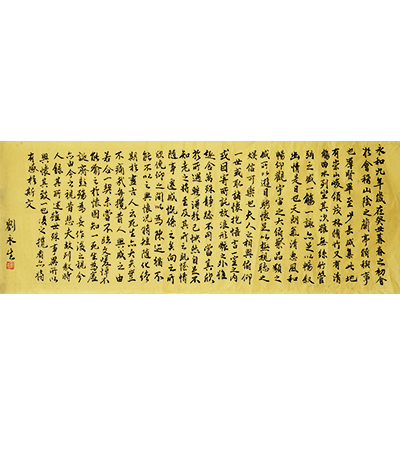 永和九年歲在癸丑暮春之初會
於會稽山陰之蘭亭脩稧事
也群賢畢至少長咸集此地
有崇山峻領茂林脩竹又有清
觴曲水列坐其次雖無絲竹管
弦之盛一觴一詠亦足以暢叙
幽情是日也天朗氣清惠風和
暢仰觀宇宙之大俯察品類之
盛所以遊目騁懷足以極視聽之
娛信可樂也夫人之相與俯仰
一世或取諸懷抱悟言一室之內
或因寄所託放浪形骸之外雖
趣舍萬殊靜躁不同當其欣
於所遇暫得於己快然自足不
知老之將至及其所之既惓情
隨事遷感慨係之矣向之所
欣俛仰之間以為陳迹猶不
能不以之興懷況脩短隨化終
期於盡古人云死生亦大矣豈
不痛哉每攬昔人興感之由
若合一契未嘗不臨文嗟悼不
能喻之於懷固知一死生為虛
誕齊彭殤為妄作後之視今
亦由今之視昔悲夫故列叙時
人錄其所述雖世殊事異所以
興懷其致一也後之攬者亦將
有感於斯文
劉永生